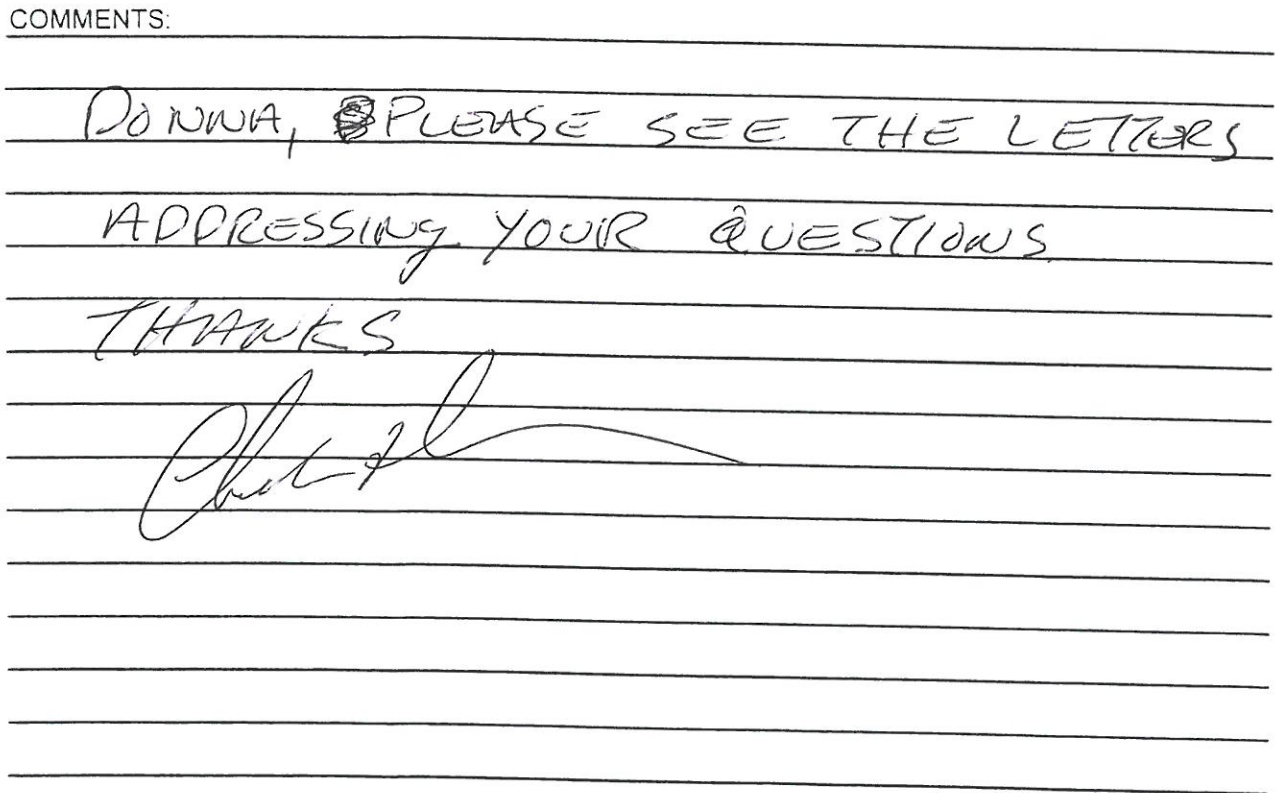 COMMENTS:
DONNA, PLEASE SEE THE LETTERS
ADDRESSING YOUR QUESTIONS
THANKS